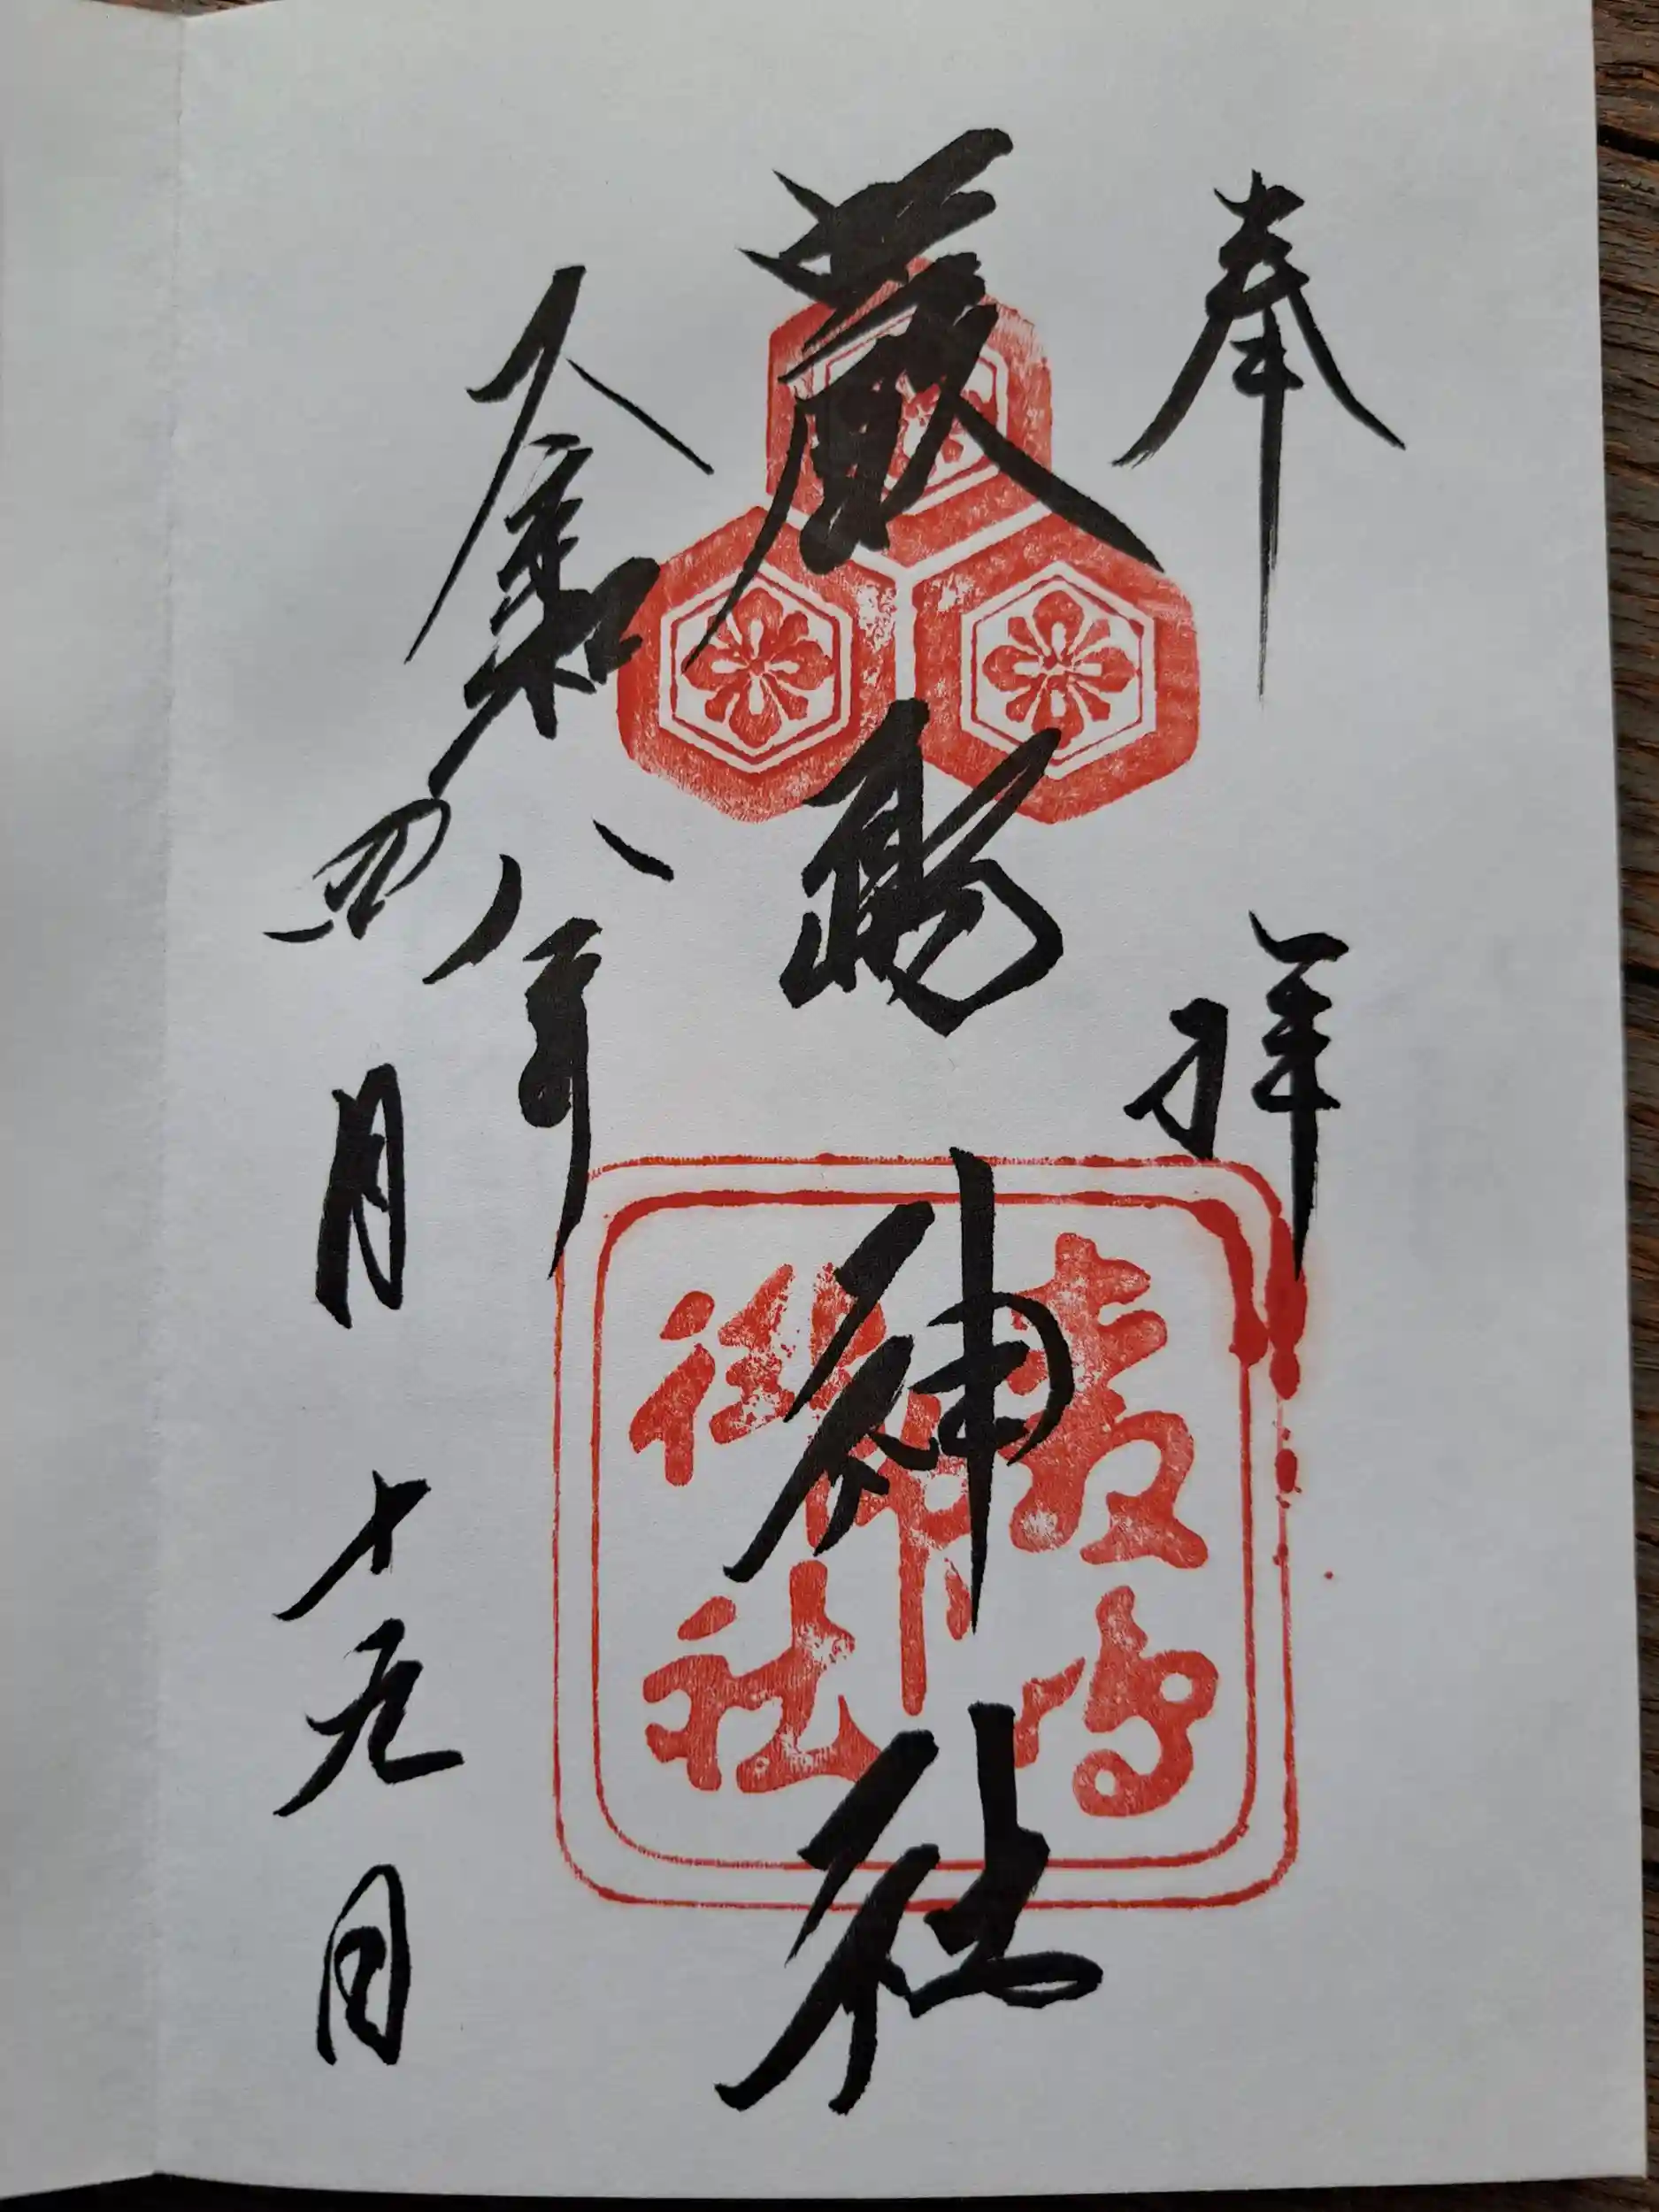 奉拝
厳島神社
令和八年
四月十九日
嚴島
神社